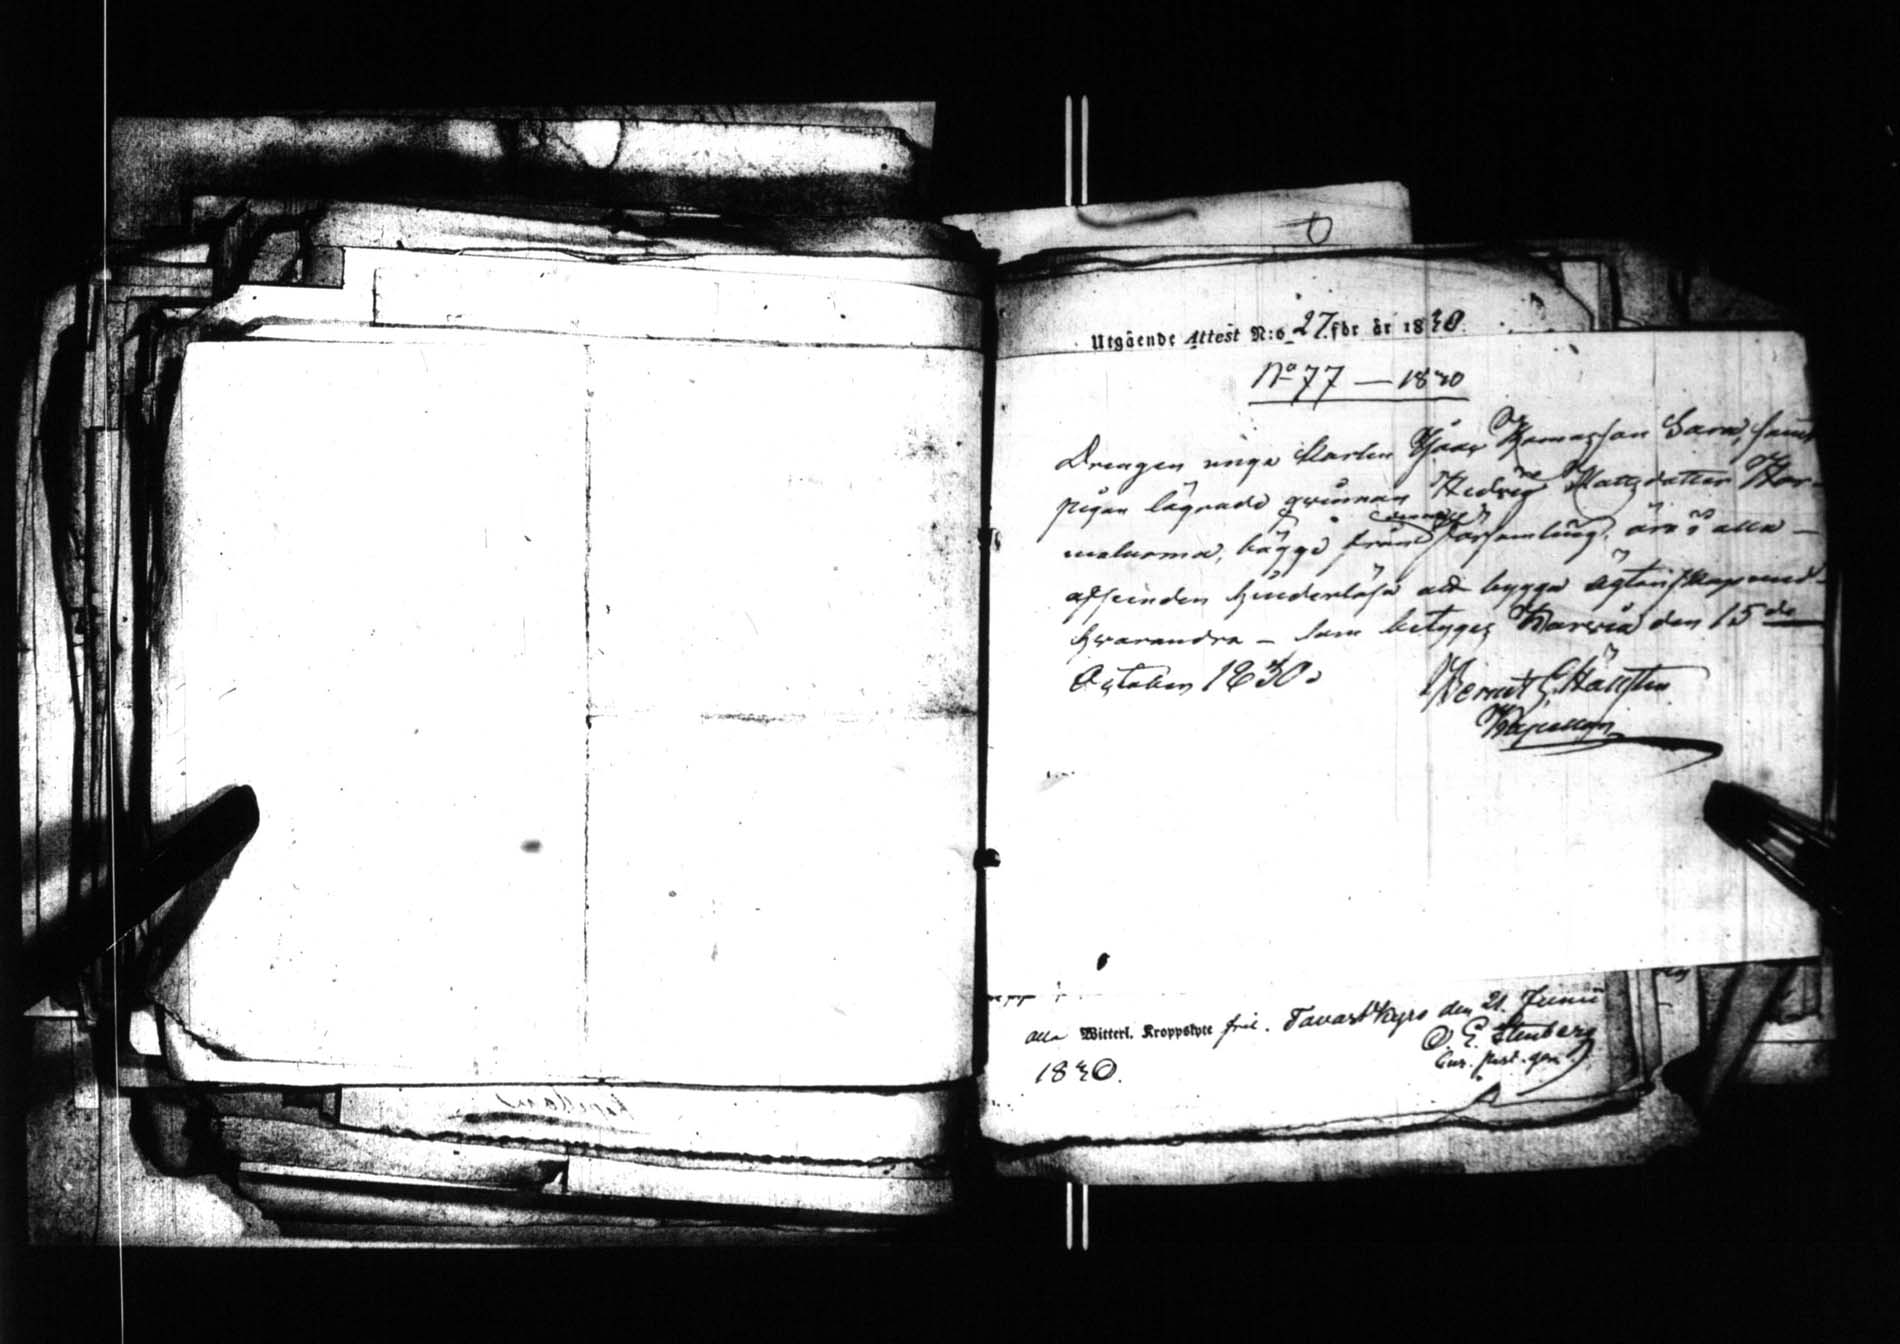 Utgående Attest N:o 27. för år 1830.
No 77 — 1830
Drengen unga Karlen Isaac Thomasson Sara, samt
pigan lägrade qwinnan Hedvig Mattsdotter Har-
malasma, bägge från denna Församling, äro i alla
afseenden hinderlösa att bygga ägtenskap med
hwarandra – Som betygas Karvia den 15de
October 1830.
Kapellan
alla Witterl. Kroppslyte fri. Tavastkyro den 21. Junii
1830. O. E. Stenberg
Cur. past. gen.